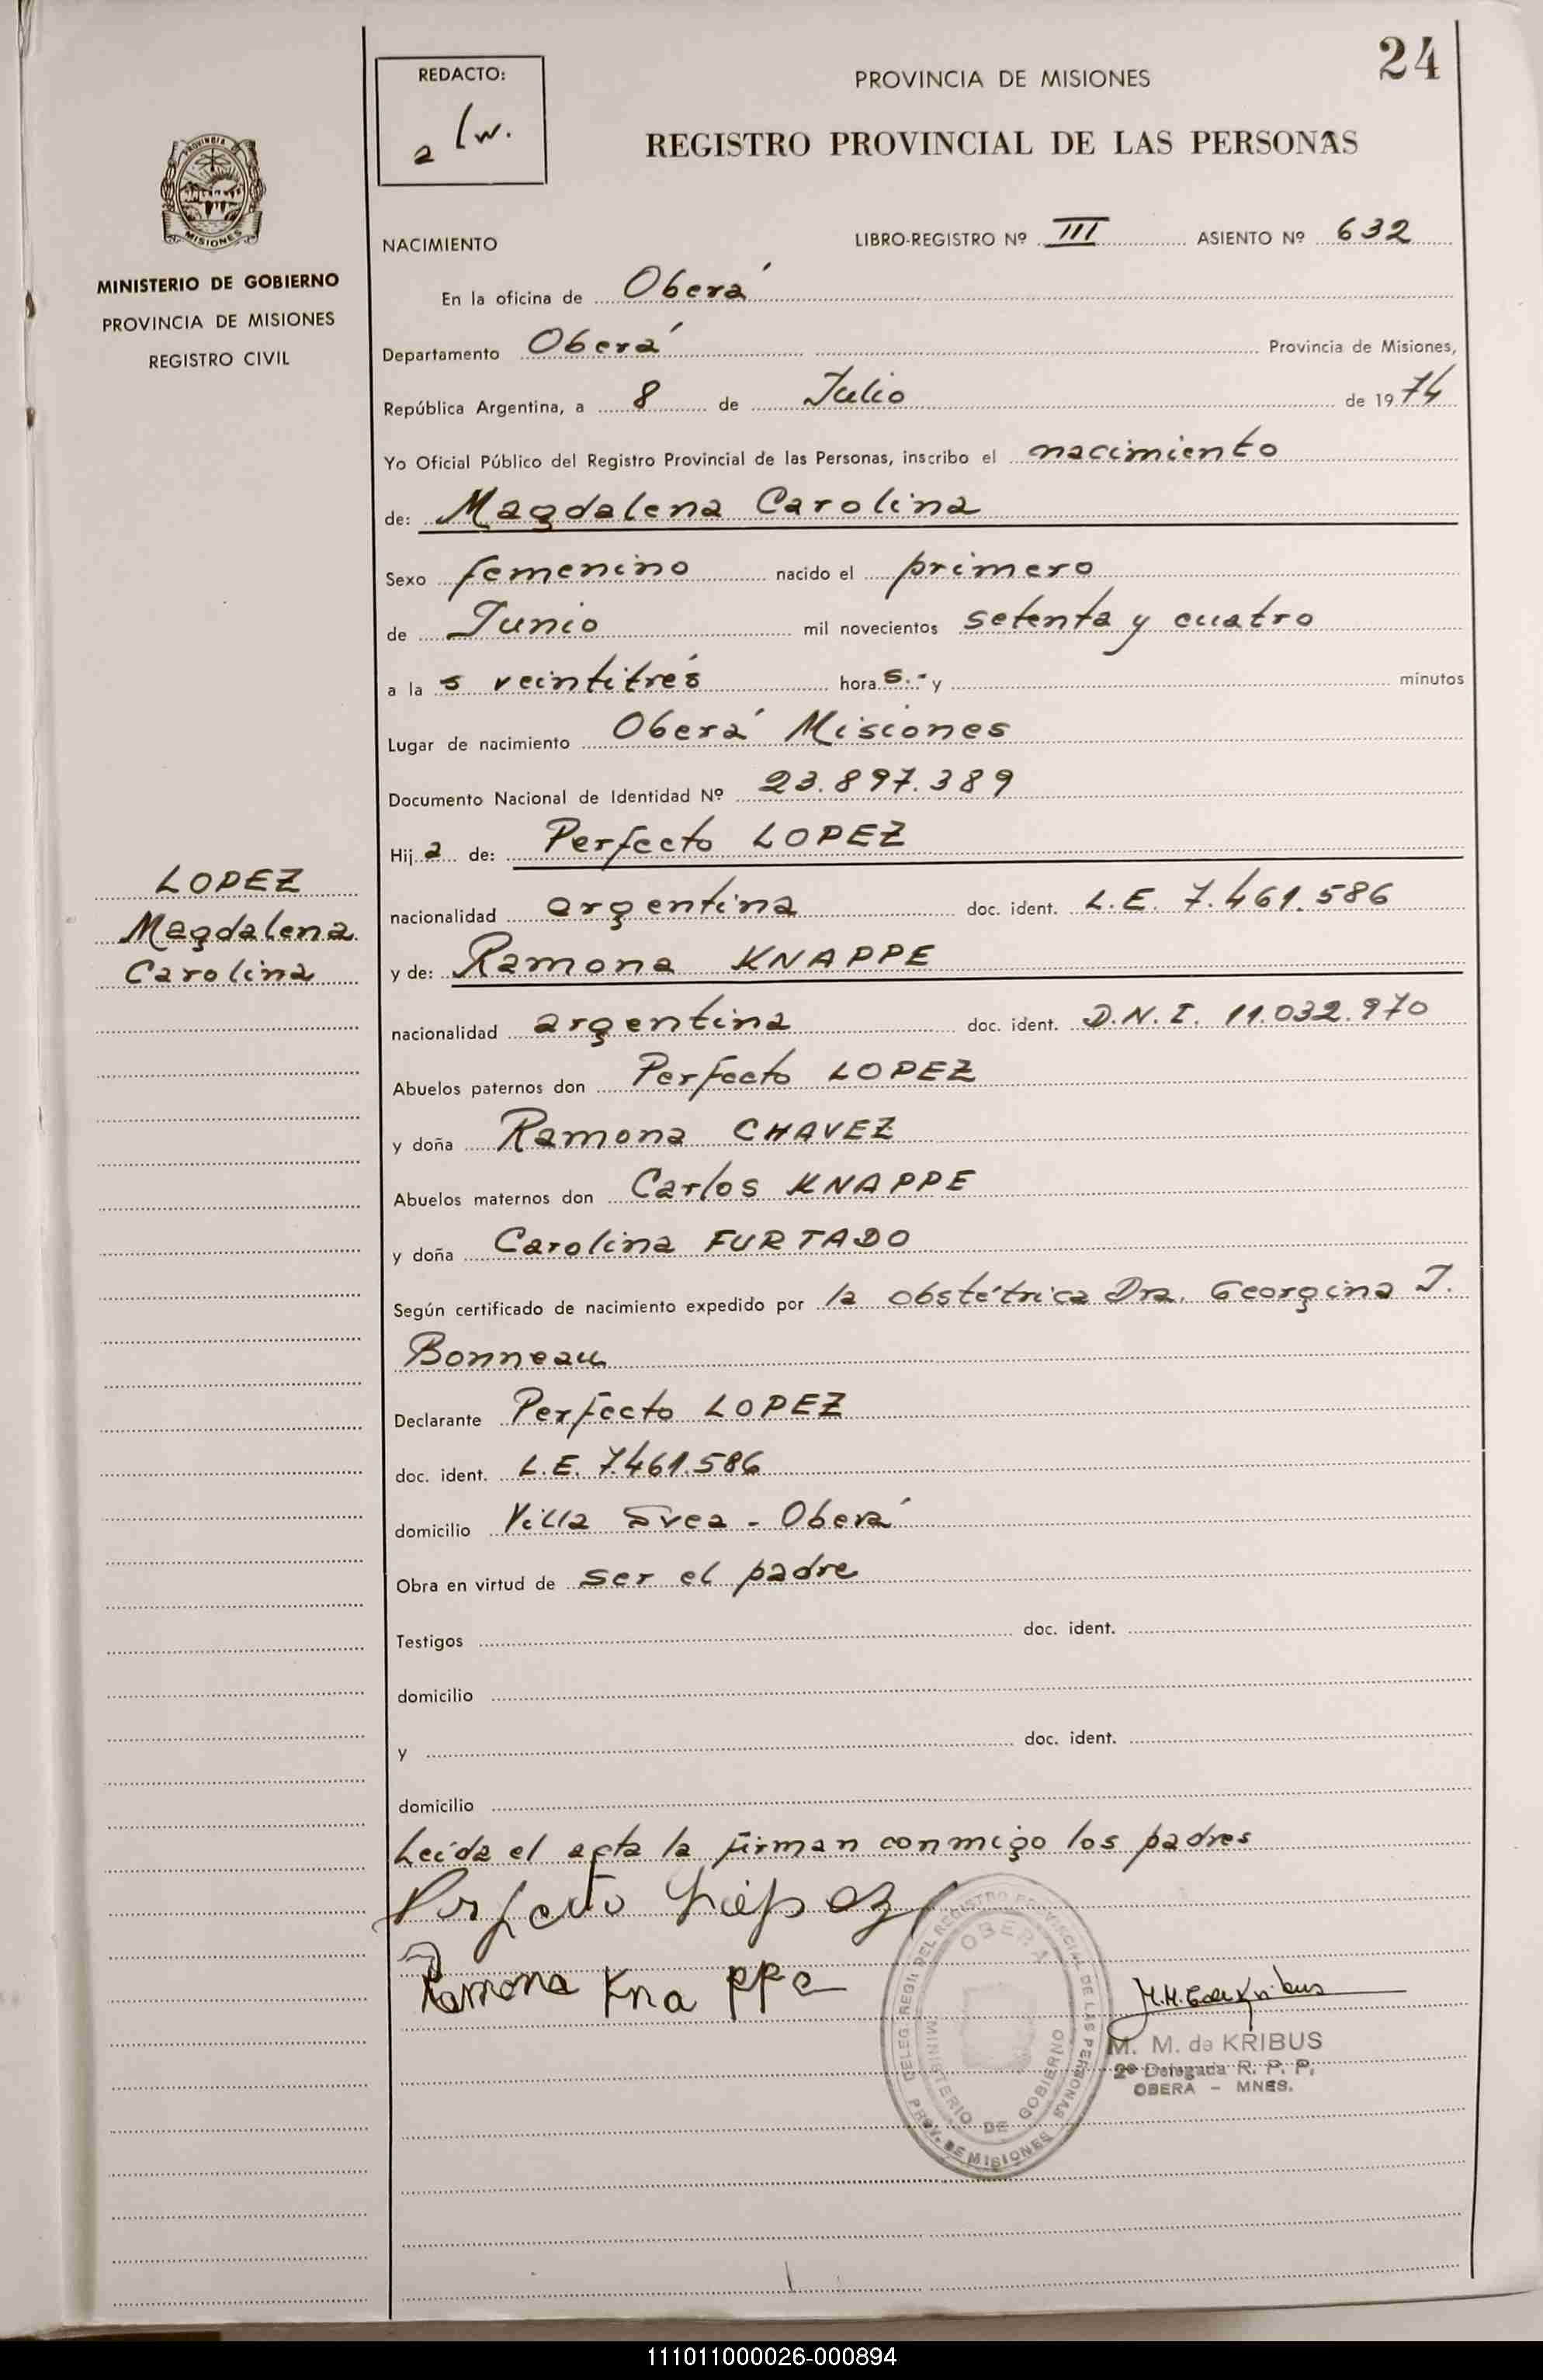 24
REDACTO:
a/w.
PROVINCIA DE MISIONES
REGISTRO PROVINCIAL DE LAS PERSONAS
PROVINCIA DE
MISIONES
MINISTERIO DE GOBIERNO
PROVINCIA DE MISIONES
REGISTRO CIVIL
NACIMIENTO LIBRO-REGISTRO Nº III ASIENTO Nº 632
En la oficina de Oberá
Departamento Oberá Provincia de Misiones,
República Argentina, a 8 de Julio de 1974
Yo Oficial Público del Registro Provincial de las Personas, inscribo el nacimiento
de: Magdalena Carolina
Sexo femenino nacido el primero
de Junio mil novecientos setenta y cuatro
a las veintitrés horas.- y minutos
Lugar de nacimiento Oberá Misiones
Documento Nacional de Identidad Nº 23.897.389
Hija de: Perfecto LOPEZ
LOPEZ
Magdalena
Carolina
nacionalidad argentina doc. ident. L.E. 7.461.586
y de: Ramona KNAPPE
nacionalidad argentina doc. ident. D.N.I. 11.032.970
Abuelos paternos don Perfecto LOPEZ
y doña Ramona CHAVEZ
Abuelos maternos don Carlos KNAPPE
y doña Carolina FURTADO
Según certificado de nacimiento expedido por la obstétrica Dra. Georgina J.
Bonneau
Declarante Perfecto LOPEZ
doc. ident. L.E. 7.461.586
domicilio Villa Svea - Oberá
Obra en virtud de ser el padre
Testigos doc. ident.
domicilio
y doc. ident.
domicilio
Leída el acta la firman conmigo los padres
Perfecto López
Ramona Knappe
DELEG. REGIL DEL REGISTRO PROVINCIAL DE LAS PERSONAS
OBERA
MINISTERIO DE GOBIERNO
PROV. DE MISIONES
M. M. de KRIBUS
2º Delegada R. P. P.
OBERA - MNES.
111011000026-000894